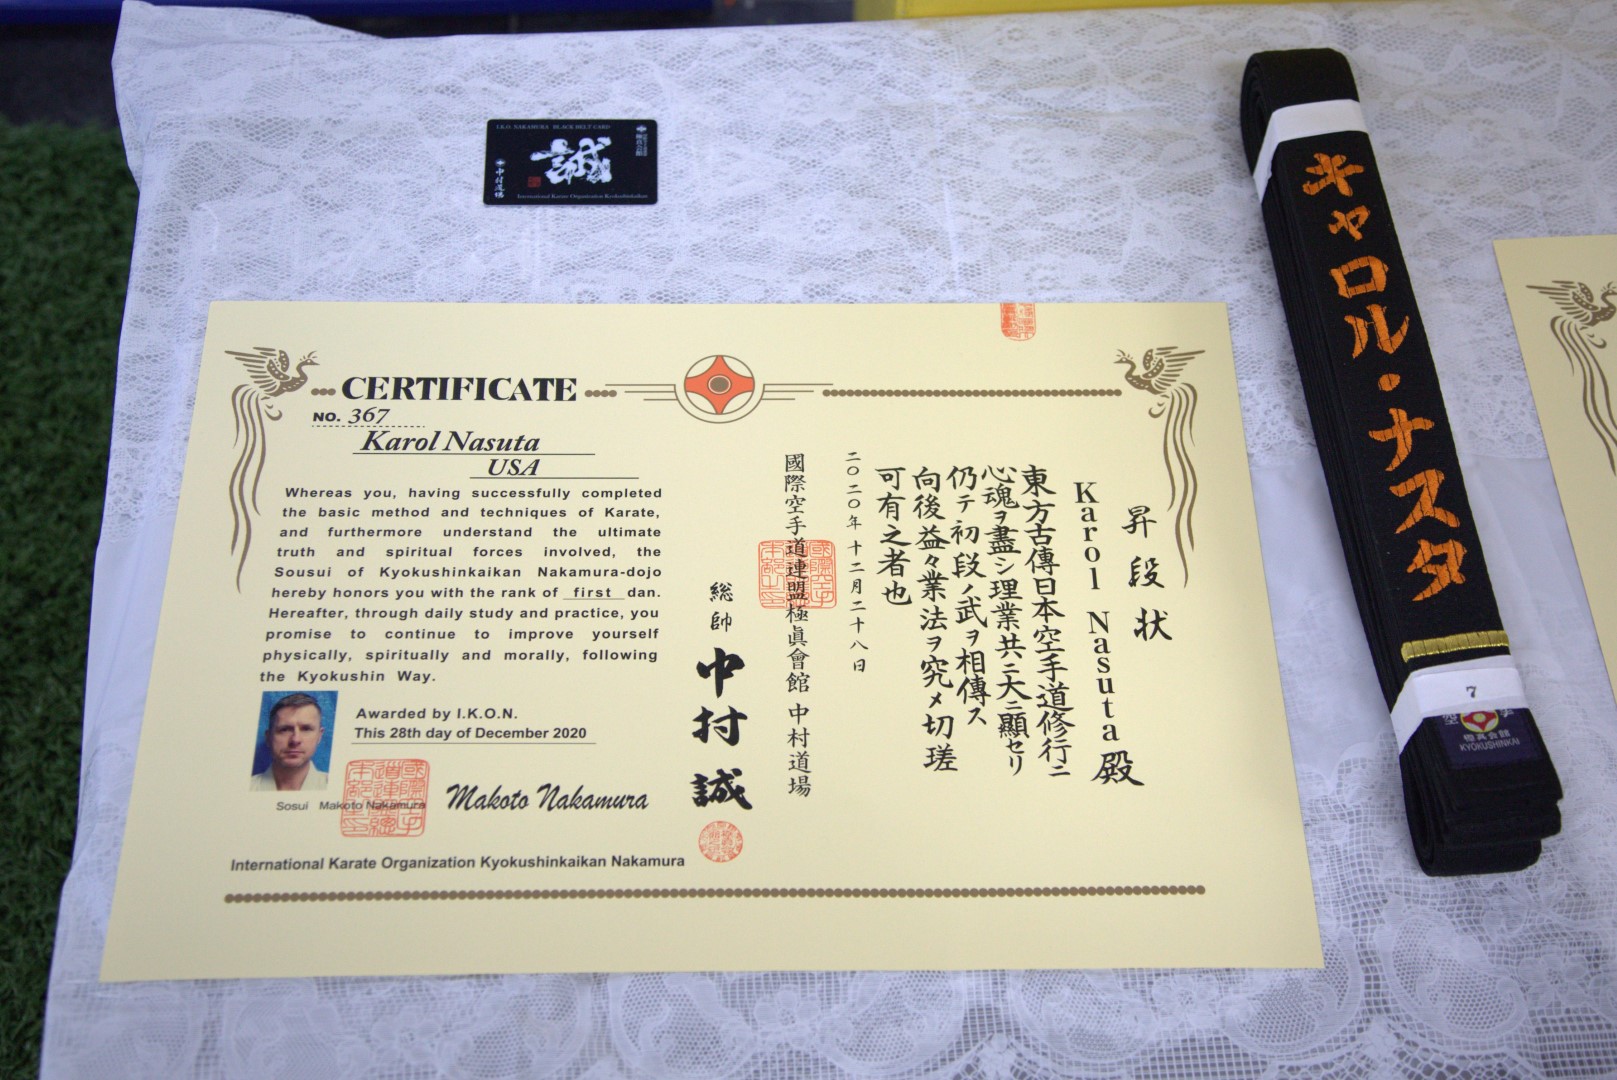 I.K.O. NAKAMURA BLACK BELT CARD
誠
中村道場
極真会館
International Karate Organization Kyokushinkaikan
CERTIFICATE
NO. 367
Karol Nasuta
USA
Whereas you, having successfully completed
the basic method and techniques of Karate,
and furthermore understand the ultimate
truth and spiritual forces involved, the
Sousui of Kyokushinkaikan Nakamura-dojo
hereby honors you with the rank of first dan.
Hereafter, through daily study and practice, you
promise to continue to improve yourself
physically, spiritually and morally, following
the Kyokushin Way.
Awarded by I.K.O.N.
This 28th day of December 2020
Sosui Makoto Nakamura
Makoto Nakamura
International Karate Organization Kyokushinkaikan Nakamura
昇段状
Karol Nasuta 殿
東方古傳日本空手道修行ニ
心魂ヲ盡シ理業共ニ大ニ顯セリ
仍テ初段ノ武ヲ相傳ス
向後益々業法ヲ究メ切瑳
可有之者也
二〇二〇年十二月二十八日
國際空手道連盟極眞會館 中村道場
総帥
中村誠
キャロル・ナスタ
7
空手
極真会館
KYOKUSHINKAI